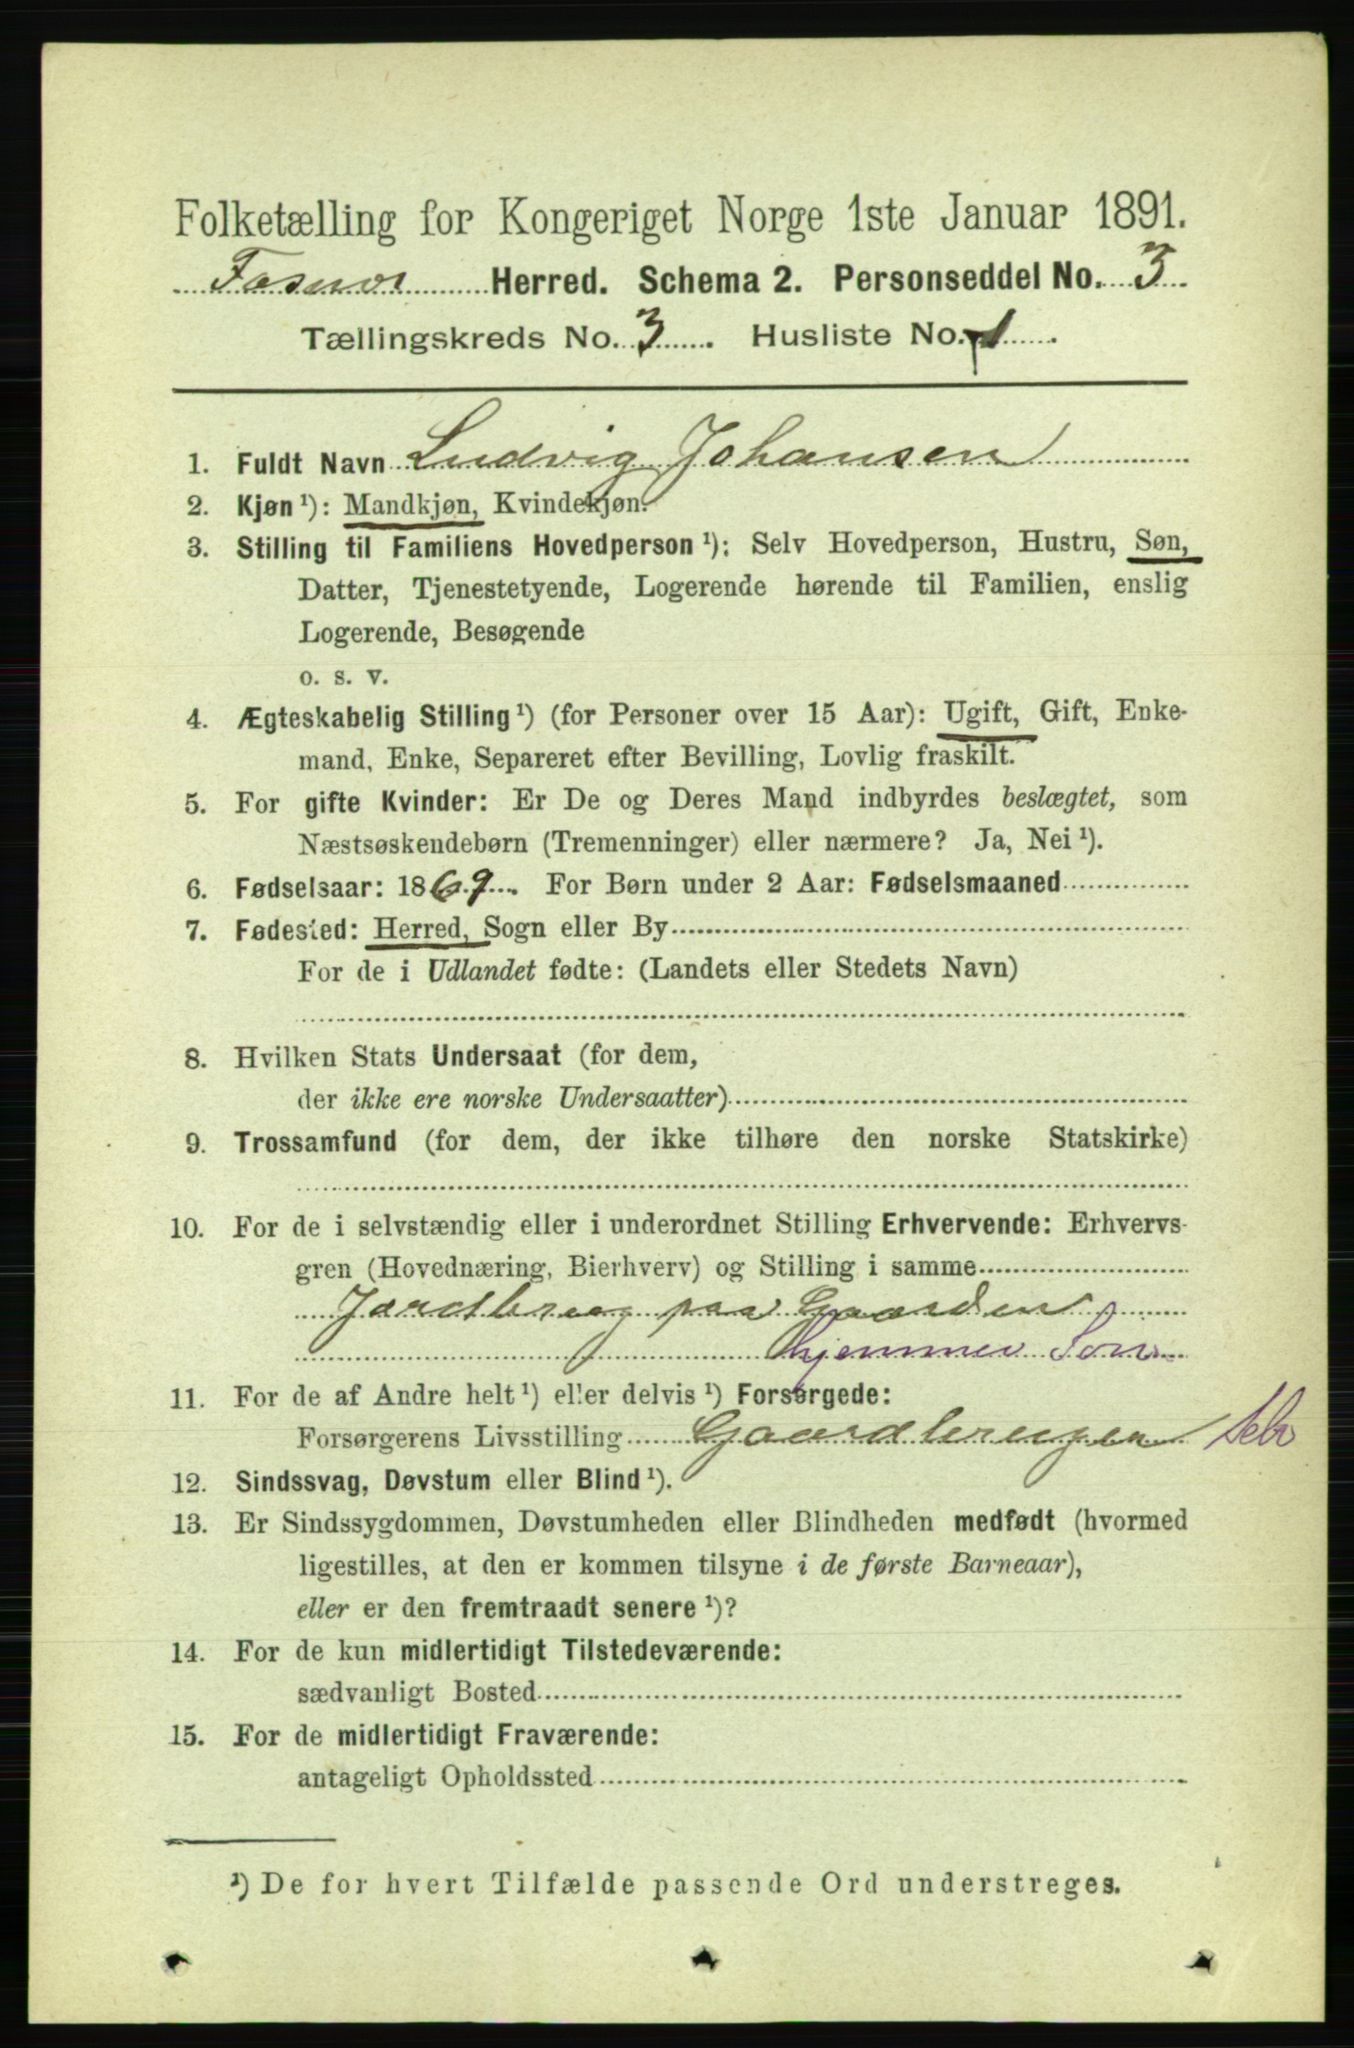 Folketælling for Kongeriget Norge 1ste Januar 1891.
Fosnes Herred. Schema 2. Personseddel No. 3
Tællingskreds No. 3 Husliste No. 1
1. Fuldt Navn Ludvig Johansen
2. Kjøn ¹): Mandkjøn, Kvindekjøn.
3. Stilling til Familiens Hovedperson ¹): Selv Hovedperson, Hustru, Søn,
Datter, Tjenestetyende, Logerende hørende til Familien, enslig
Logerende, Besøgende
o. s. v.
4. Ægteskabelig Stilling ¹) (for Personer over 15 Aar): Ugift, Gift, Enke-
mand, Enke, Separeret efter Bevilling, Lovlig fraskilt.
5. For gifte Kvinder: Er De og Deres Mand indbyrdes beslægtet, som
Næstsøskendebørn (Tremenninger) eller nærmere? Ja, Nei ¹).
6. Fødselsaar: 1869. For Børn under 2 Aar: Fødselsmaaned
7. Fødested: Herred, Sogn eller By
For de i Udlandet fødte: (Landets eller Stedets Navn)
8. Hvilken Stats Undersaat (for dem,
der ikke ere norske Undersaatter)
9. Trossamfund (for dem, der ikke tilhøre den norske Statskirke)
10. For de i selvstændig eller i underordnet Stilling Erhvervende: Erhvervs-
gren (Hovednæring, Bierhverv) og Stilling i samme
Jordbrug paa Gaarden
hjemmev Søn
11. For de af Andre helt ¹) eller delvis ¹) Forsørgede:
Forsørgerens Livsstilling Gaardbruger Selv
12. Sindssvag, Døvstum eller Blind ¹).
13. Er Sindssygdommen, Døvstumheden eller Blindheden medfødt (hvormed
ligestilles, at den er kommen tilsyne i de første Barneaar),
eller er den fremtraadt senere ¹)?
14. For de kun midlertidigt Tilstedeværende:
sædvanligt Bosted
15. For de midlertidigt Fraværende:
antageligt Opholdssted
¹) De for hvert Tilfælde passende Ord understreges.